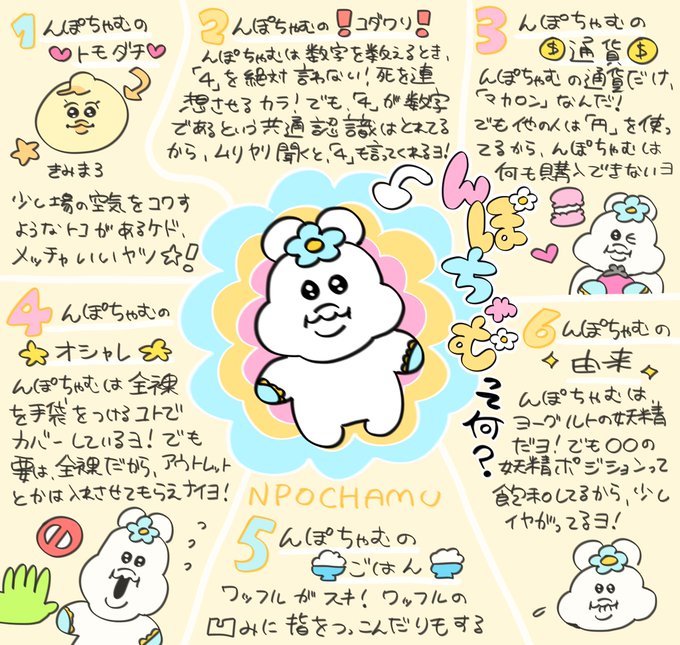 1 んぽちゃむの
トモダチ
きみまろ
少し場の空気をコワす
ようなトコがあるケド、
メッチャいいヤツ☆!
2 んぽちゃむの！コダワリ！
んぽちゃむは数字を数えるとき、
「4」を絶対言わない！死を連
想させるカラ！でも、「4」が数字
であるという共通認識はとれてる
から、ムリヤリ聞くと、「4」も言ってくれるヨ！
3 んぽちゃむの
$通貨$
んぽちゃむの通貨だけ、
「マカロン」なんだ！
でも他の人は「円」を使っ
てるから、んぽちゃむは
何も購入できないヨ
んぽちゃむって何？
4 んぽちゃむの
オシャレ
んぽちゃむは全裸
を手袋をつけるコトで
カバーしているヨ！でも
要は、全裸だから、アウトレット
とかは入れさせてもらえナイヨ！
NPOCHAMU
5 んぽちゃむの
ごはん
ワッフルがスキ！ワッフルの
凹みに指をつっこんだりもする
6 んぽちゃむの
由来
んぽちゃむは、
ヨーグルトの妖精
だヨ！でも〇〇の
妖精ポジションって
飽和してるから、少し
イヤがってるヨ！